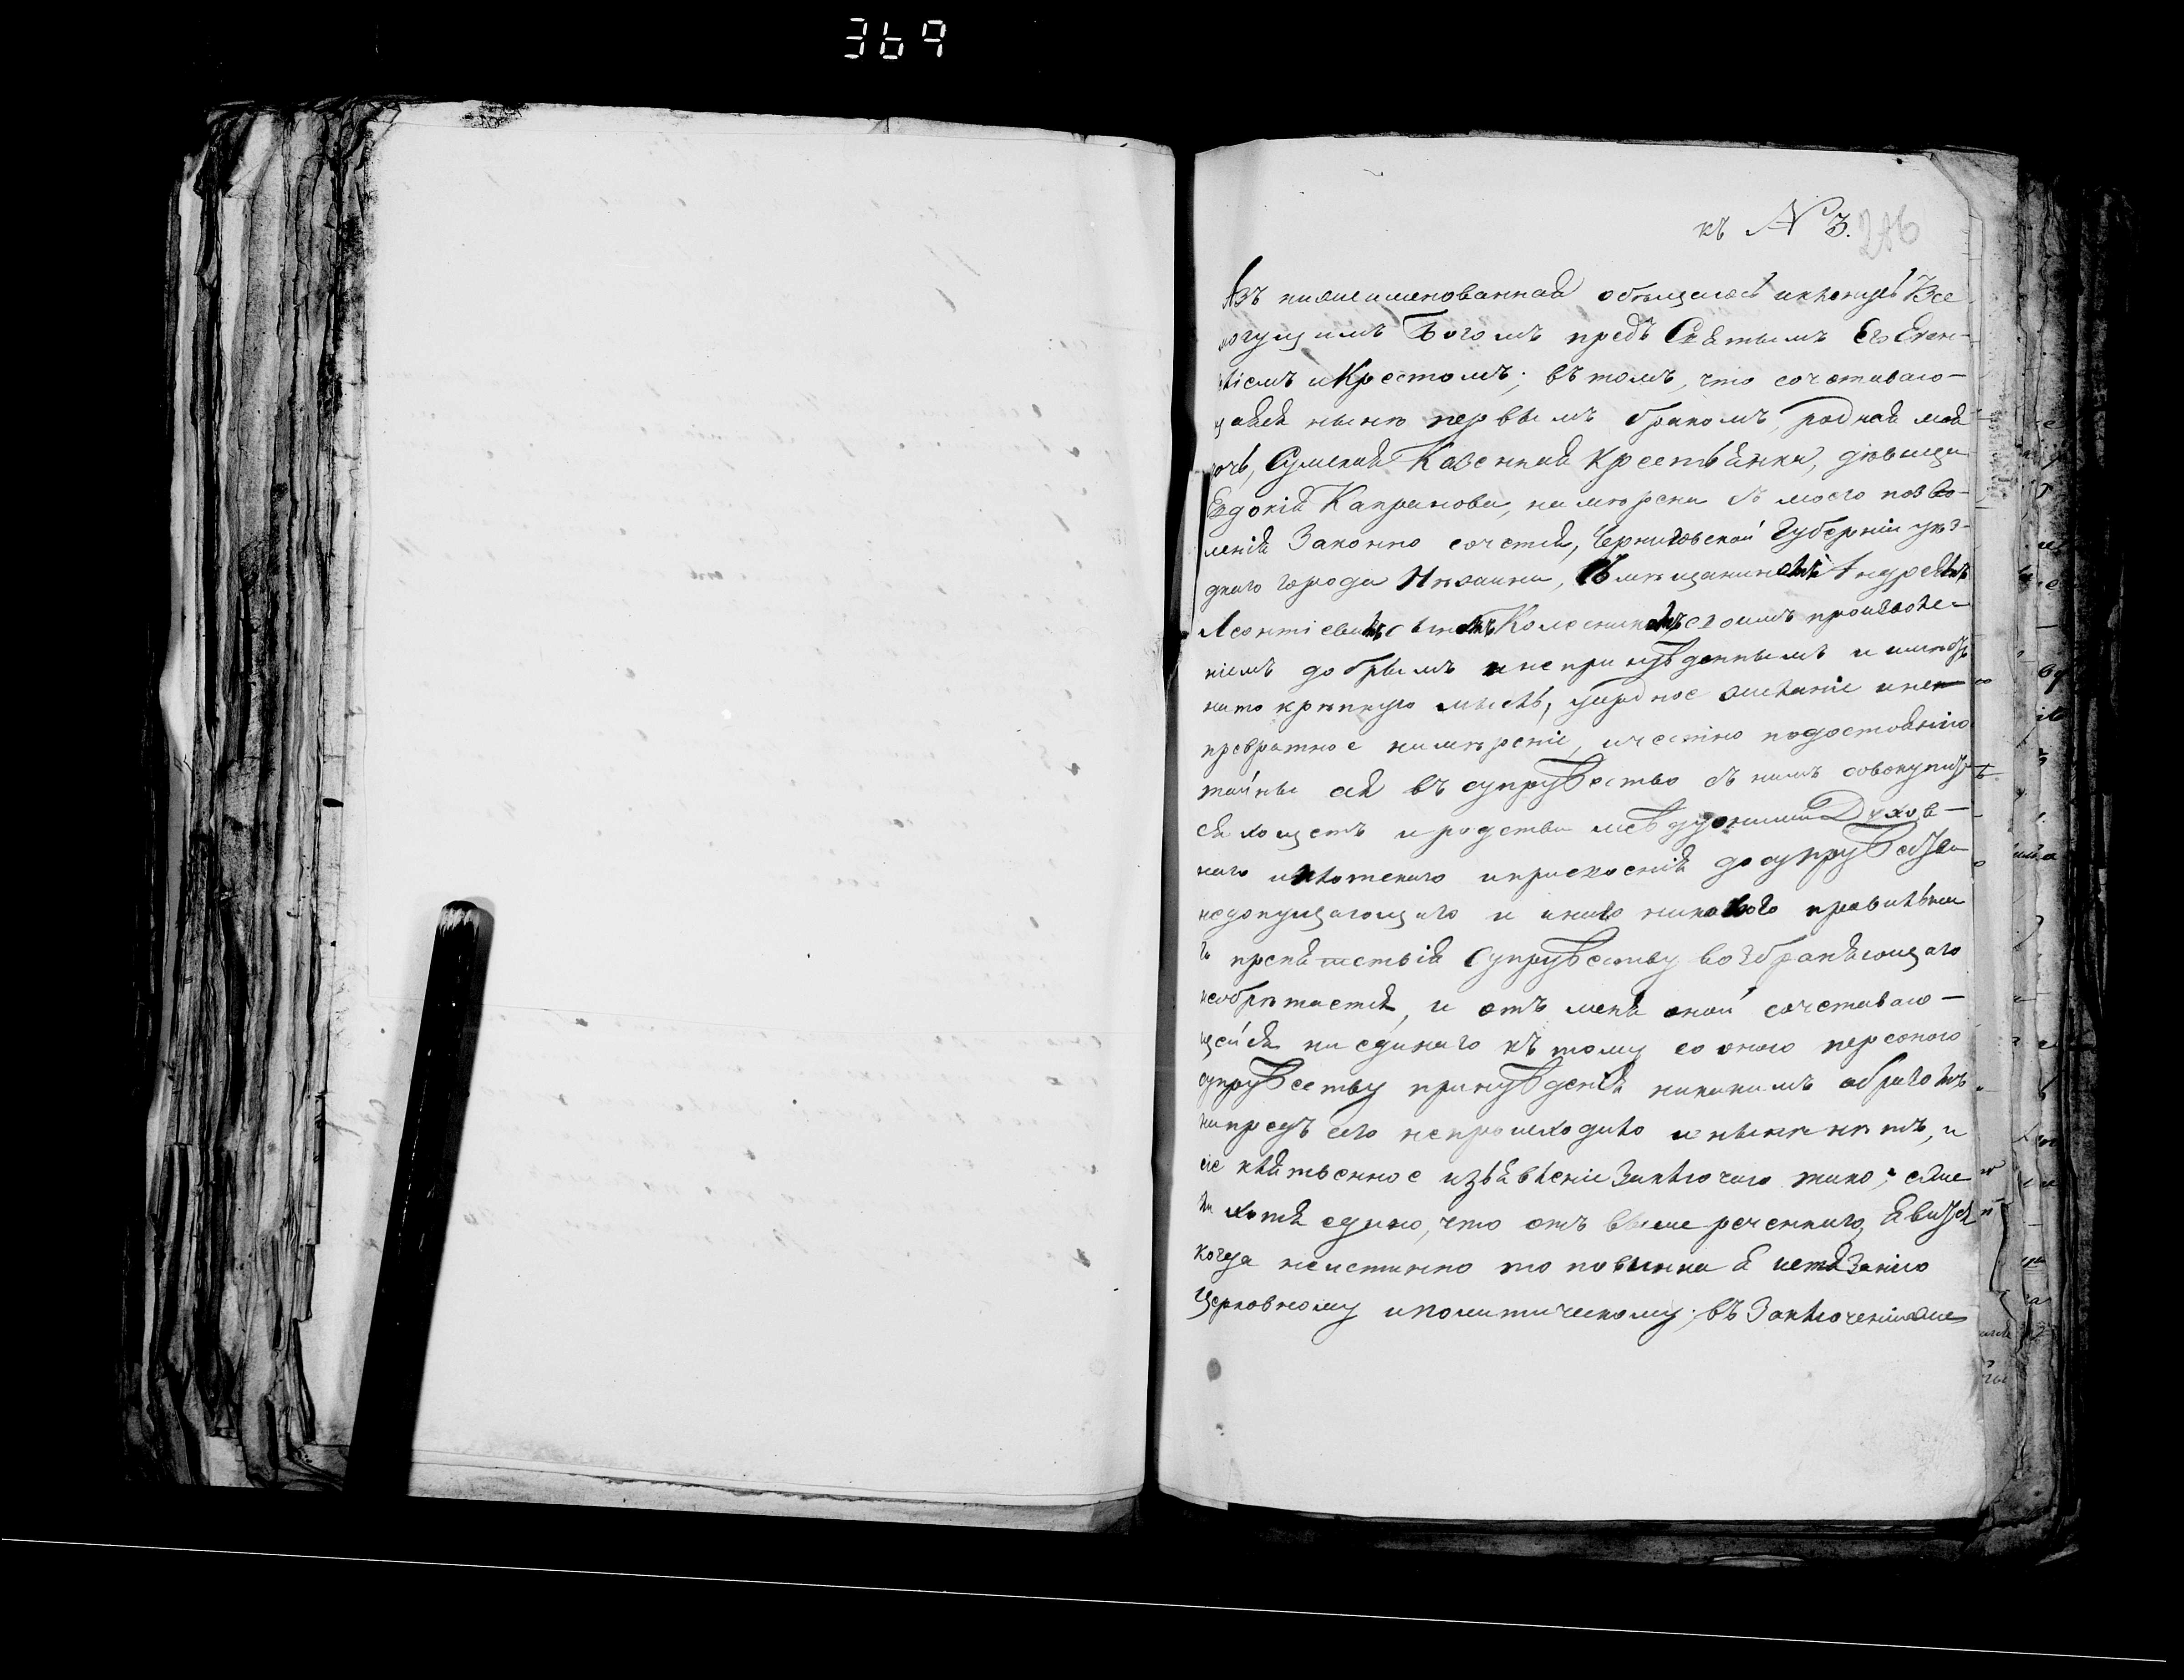 369
къ № 3. 216
Азъ нижеименованная обѣщаюсь и клянусь Все
могущимъ Богомъ предъ Святымъ Его Еван-
гліемъ и Крестомъ; въ томъ, что сочетаваю-
щаяся нынѣ первымъ бракомъ, родная моя
дочь, Сумская Казенная крестьянка, дѣвица
Евдокія Капранова, намѣрена съ моего позво-
ленія Законно сочетися, Черниговской Губерніи уѣз-
днаго города Нѣжина, Съ мѣщаниномъ Андреемъ
Леонтіевымъ сыномъ Колесникомъ своимъ произволе-
ніемъ добрымъ и непринужденнымъ и имѣетъ
на то крѣпкую мысль, усердное желаніе и не
превратное намѣреніе, и честно по достоянію
тайны сея въ супружество съ нимъ совокупить
ся хощетъ и родства между оними Духов-
наго и плотскаго и присвоенія до супружества
недопущающаго и инаго никакого правильна
го препятствія Супружеству возбраняющаго
необрѣтается, и отъ меня оной сочетаваю-
щейся ни единаго къ тому со оною персоною
супружеству принужденія никакимъ образомъ
напредъ сего не происходило и нынѣ нѣтъ, и
сіе клятвенное изъявленіе Заключаю тако; еже
ли хотя едино, что отъ выше реченнаго, явится
когда неистинно то повинна я истязанію
Церковному и политическому; въ Заключеніи же